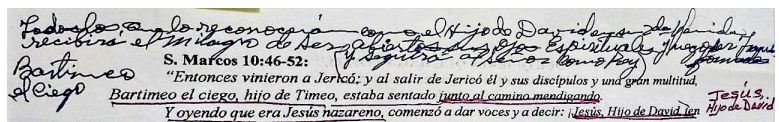 Todos los que lo reconocerá como el Hijo de David
recibirá el Milagro de Ser abiertos sus ojos Espirituales
y seguirá al Señor como hoy
Bartimeo
el Ciego
S. Marcos 10:46-52:
"Entonces vinieron a Jericó; y al salir de Jericó él y sus discípulos y una gran multitud,
Bartimeo el ciego, hijo de Timeo, estaba sentado junto al camino mendigando.
Y oyendo que era Jesús nazareno, comenzó a dar voces y a decir: ¡Jesús, Hijo de David, ten
Jesús.
Hijo de David